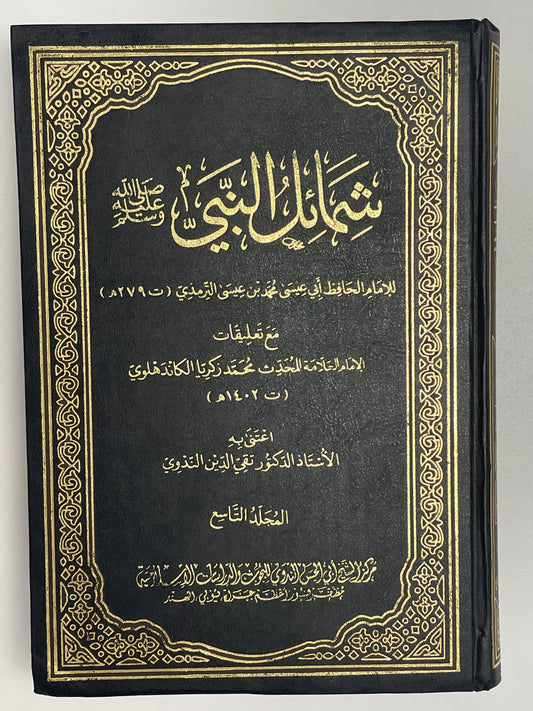 شمائل النبي صلى الله عليه وسلم
للإمام الحافظ أبي عيسى محمد بن عيسى الترمذي (ت ٢٧٩ هـ)
مع تعليقات
الإمام العلامة المحدث محمد زكريا الكاندهلوي
(ت ١٤٠٢ هـ)
اعتنى به
الأستاذ الدكتور تقي الدين الندوي
المجلد التاسع
مركز الشيخ أبي الحسن الندوي للبحوث والدراسات الإسلامية
مظفر فور، أعظم جراه، يوبي، الهند